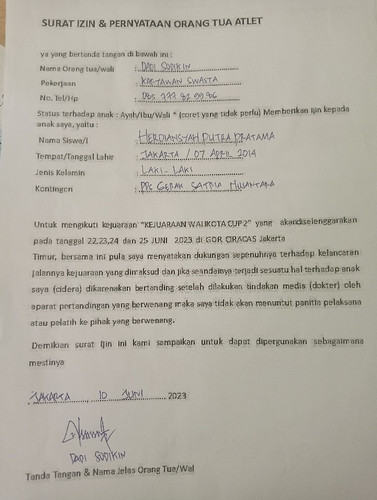 SURAT IZIN & PERNYATAAN ORANG TUA ATLET
ya yang bertanda tangan di bawah ini :
Nama Orang tua/wali : DADI SODIKIN
Pekerjaan : KARYAWAN SWASTA
No. Tel/Hp :
Status terhadap anak : Ayah/Ibu/Wali * (coret yang tidak perlu) Memberikan Ijin kepada
anak saya, yaitu :
Nama Siswa/I : HERDIANSYAH PUTRA PRATAMA
Tempat/Tanggal Lahir : JAKARTA / 07 APRIL 2014
Jenis Kelamin : LAKI-LAKI
Kontingen : PPS GERAK SATRIA NUSANTARA
Untuk mengikuti kejuaraan "KEJUARAAN WALIKOTA CUP 2" yang akandiselenggarakan
pada tanggal 22,23,24 dan 25 JUNI 2023 di GOR CIRACAS Jakarta
Timur, bersama ini pula saya menyatakan dukungan sepenuhnya terhadap kelancaran
jalannya kejuaraan yang dimaksud dan jika seandainya terjadi sesuatu hal terhadap anak
saya (cidera) dikarenakan bertanding setelah dilakukan tindakan medis (dokter) oleh
aparat pertandingan yang berwenang maka saya tidak akan menuntut panitia pelaksana
atau pelatih ke pihak yang berwenang.
Demikian surat Ijin ini kami sampaikan untuk dapat dipergunakan sebagaimana
mestinya
JAKARTA, 10 JUNI 2023
DADI SODIKIN
Tanda Tangan & Nama Jelas Orang Tua/Wal